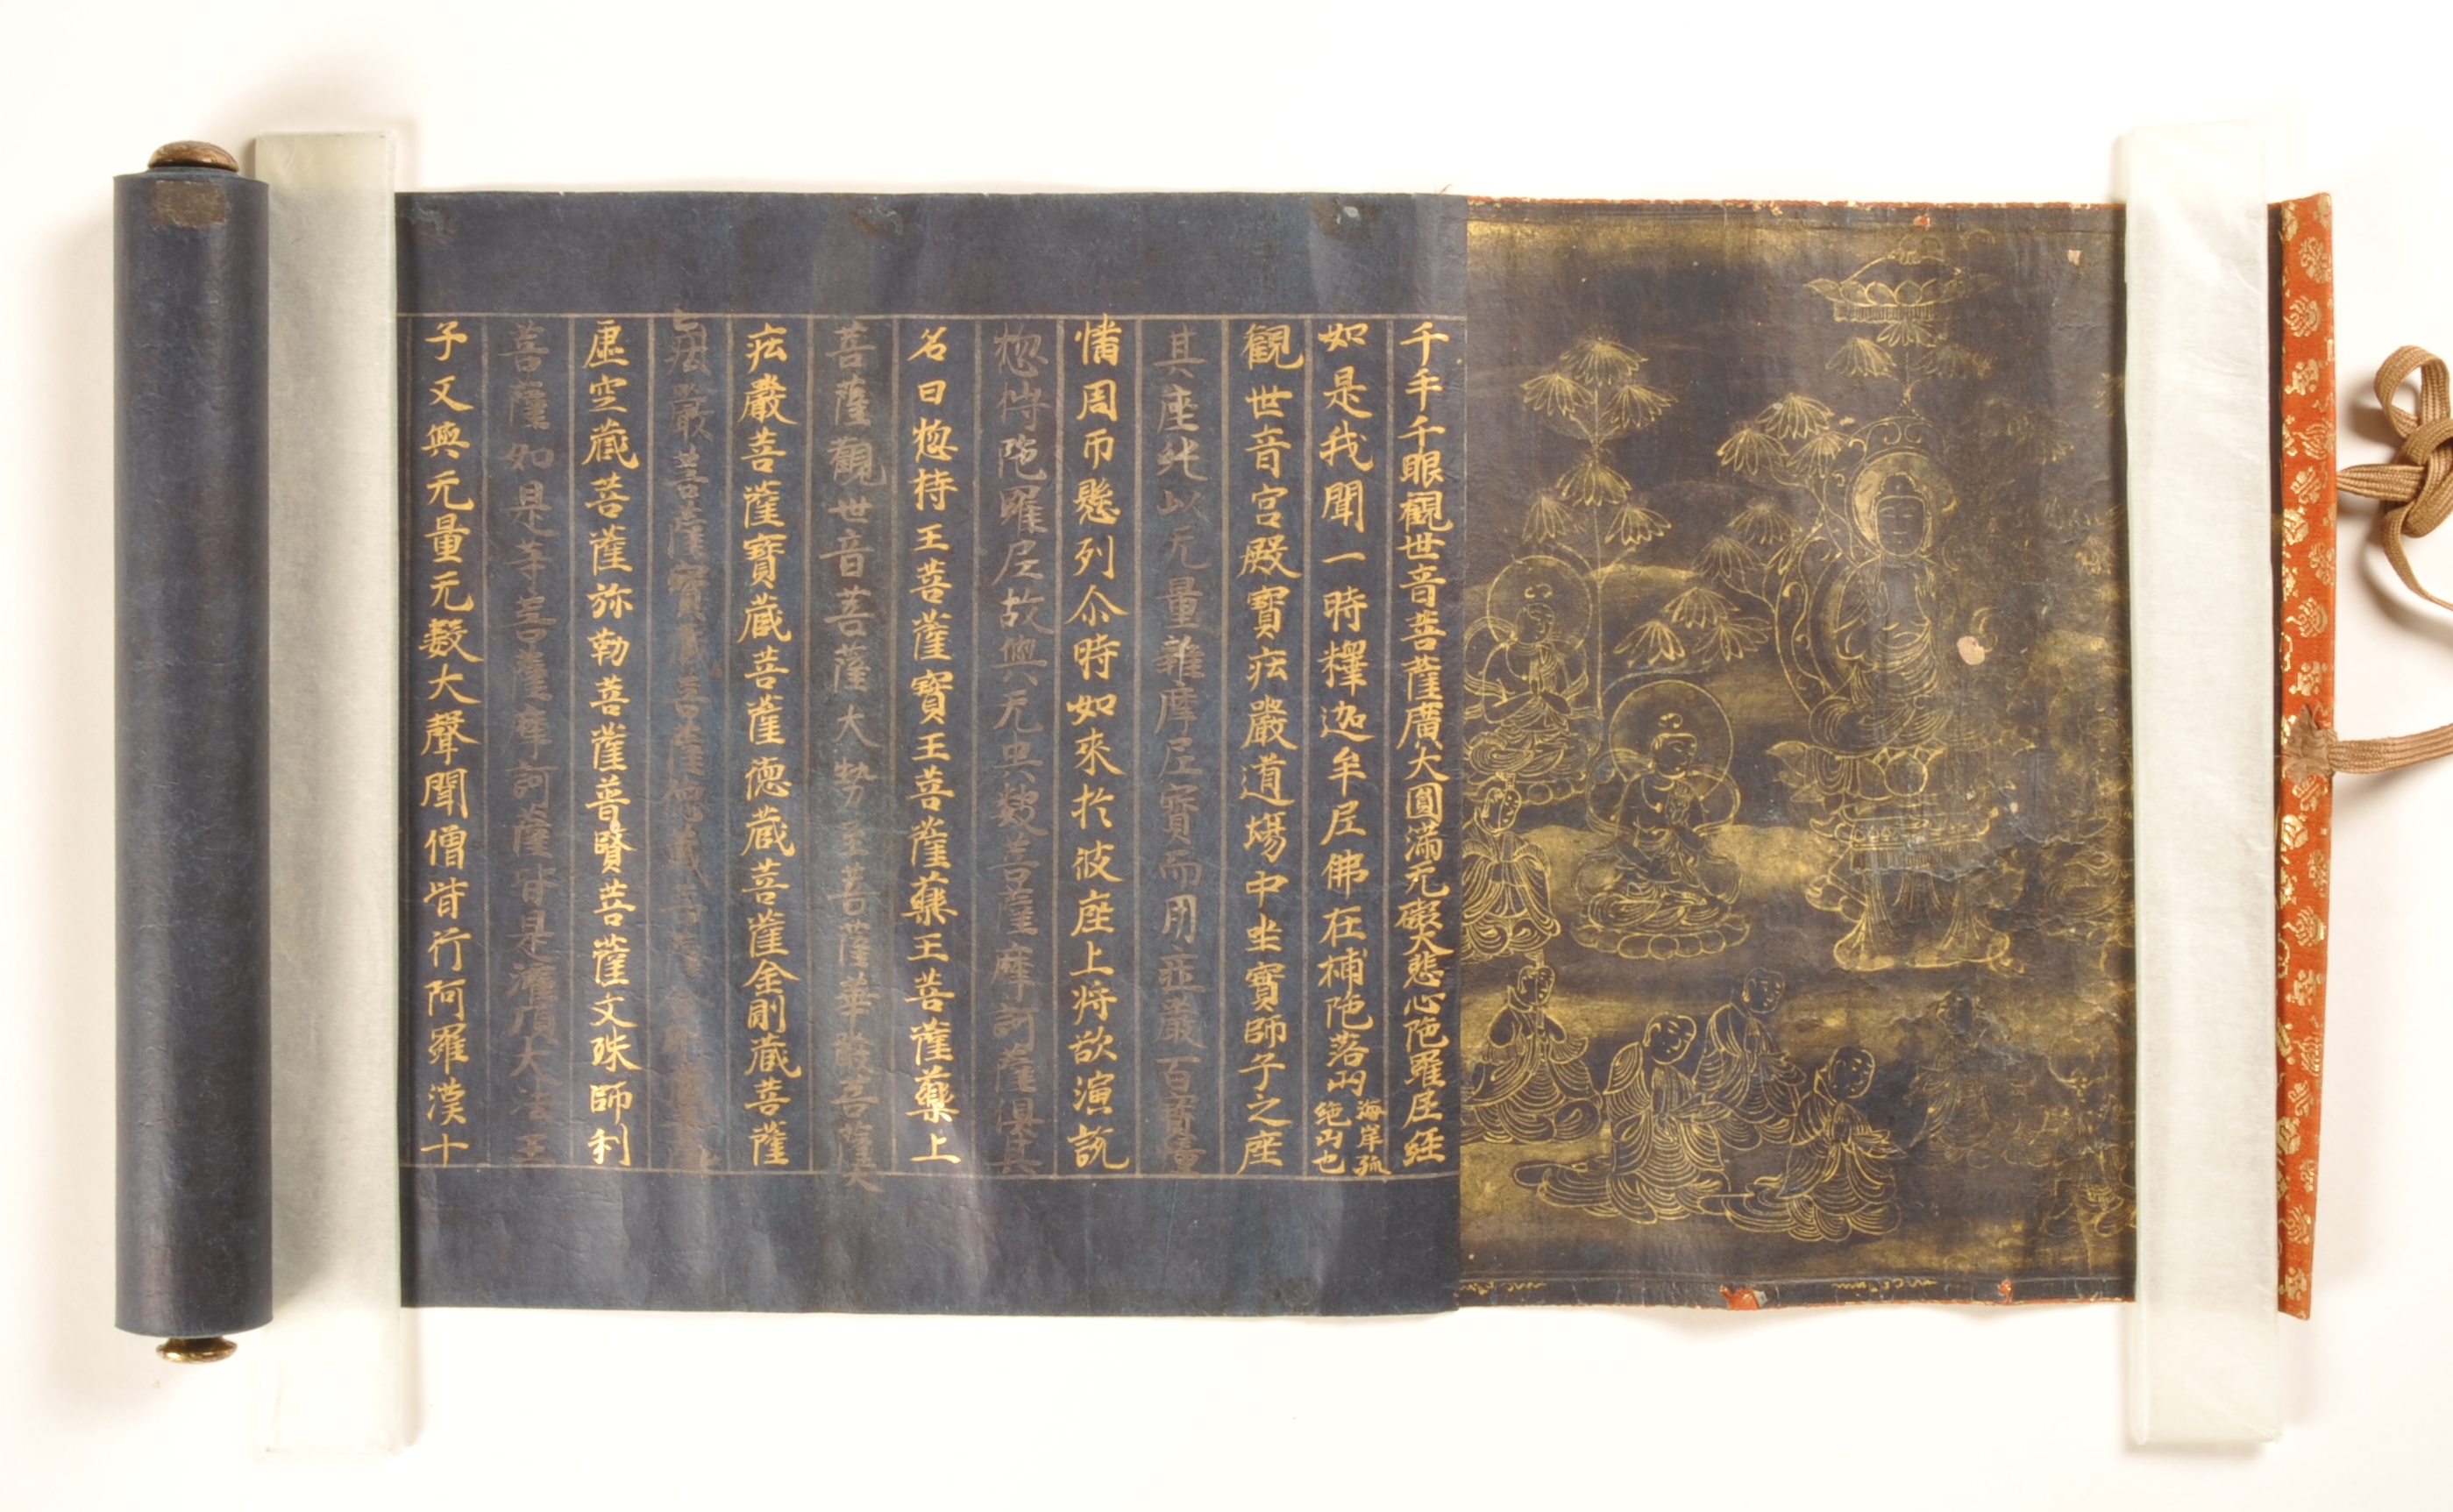 千手千眼觀世音菩薩廣大圓滿无礙大悲心陁羅尼經
如是我聞一時釋迦牟尼佛在補陁落山海岸孤絶山也
觀世音宮殿寶莊嚴道場中坐寶師子之座
其座純以无量雜摩尼寶而用莊嚴百寶幢
幡周帀懸列尒時如來扵彼座上將欲演說
惣持陁羅尼故與无央數菩薩摩訶薩俱其
名曰惣持王菩薩寶王菩薩藥王菩薩藥上
菩薩觀世音菩薩大勢至菩薩華嚴菩薩大
莊嚴菩薩寶藏菩薩德藏菩薩金剛藏菩薩
虛空藏菩薩弥勒菩薩普賢菩薩文殊師利
菩薩如是等菩薩摩訶薩皆是灌頂大法王
子又與无量无數大聲聞僧皆行阿羅漢十